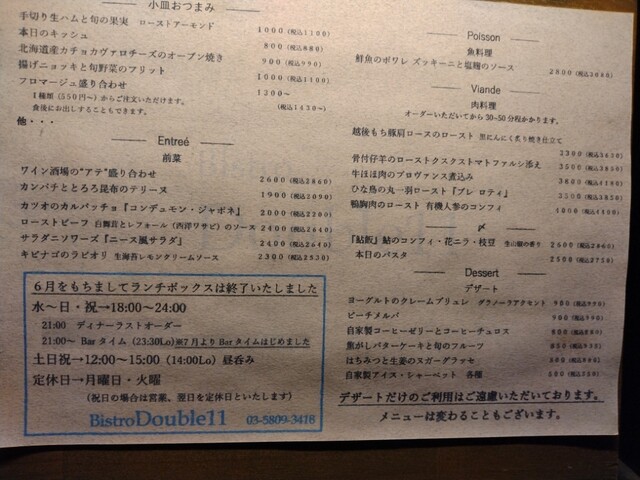 小皿おつまみ
手切り生ハムと旬の果実 ローストアーモンド 1000 (税込1100)
本日のキッシュ 800 (税込880)
北海道産カチョカヴァロチーズのオーブン焼き 900 (税込990)
揚げニョッキと旬野菜のアリット 1000 (税込1100)
フロマージュ盛り合わせ 1300～
1種類(550円～)からご注文いただけます。 (税込1430～)
食後にお出しすることもできます。
他・・・
Entreé
前菜
ワイン酒場の"アテ"盛り合わせ 2600 (税込2860)
カンパチととろろ昆布のテリーヌ 1900 (税込2090)
カツオのカルパッチョ『コンデュモン・ジャポネ』 2000 (税込2200)
ローストビーフ 白舞茸とレフォール(西洋ワサビ)のソース 2400 (税込2640)
サラダニソワーズ『ニース風サラダ』 2400 (税込2640)
キビナゴのラビオリ 生海苔レモンクリームソース 2300 (税込2530)
6月をもちましてランチボックスは終了いたしました
水～日・祝→18:00～24:00
21:00 ディナーラストオーダー
21:00～ Barタイム (23:30Lo)※7月よりBarタイムはじめました
土日祝→12:00～15:00 (14:00Lo) 昼呑み
定休日→月曜日・火曜
(祝日の場合は営業、翌日を定休日といたします)
BistroDouble11 03-5809-3418
Poisson
魚料理
鮮魚のポワレ ズッキーニと塩麹のソース
2800 (税込3080)
Viande
肉料理
オーダーいただいてから30~50分程かかります。
越後もち豚肩ロースのロースト 黒にんにく炙り焼き仕立て
3300 (税込3630)
骨付仔羊のローストクスクストマトファルシ添え 3500 (税込3850)
牛ほほ肉のプロヴァンス煮込み 3800 (税込4180)
ひな鳥の丸一羽ロースト『プレ ロティ』 3500 (税込3850)
鴨胸肉のロースト 有機人参のコンフィ 4000 (税込4400)
〆
『鮎飯』鮎のコンフィ・花ニラ・枝豆 生山椒の香り 2600 (税込2860)
本日のパスタ 2500 (税込2750)
Dessert
デザート
ヨーグルトのクレームブリュレ グラノーラアクセント 900 (税込990)
ピーチメルバ 900 (税込990)
自家製コーヒーゼリーとコーヒーチュロス
焦がしバターケーキと旬のフルーツ
はちみつと生姜のスガーグラッセ
自家製アイス・シャーベット 各種
デザートだけのご利用はご遠慮いただいております。
メニューは変わることもございます。